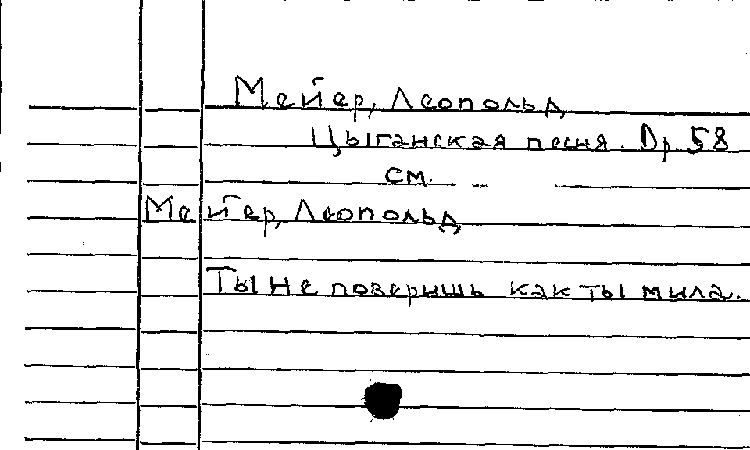 Мейер, Леопольд
Цыганская песня. Op 58
см.
Мейер, Леопольд
Ты не поверишь как ты мила.